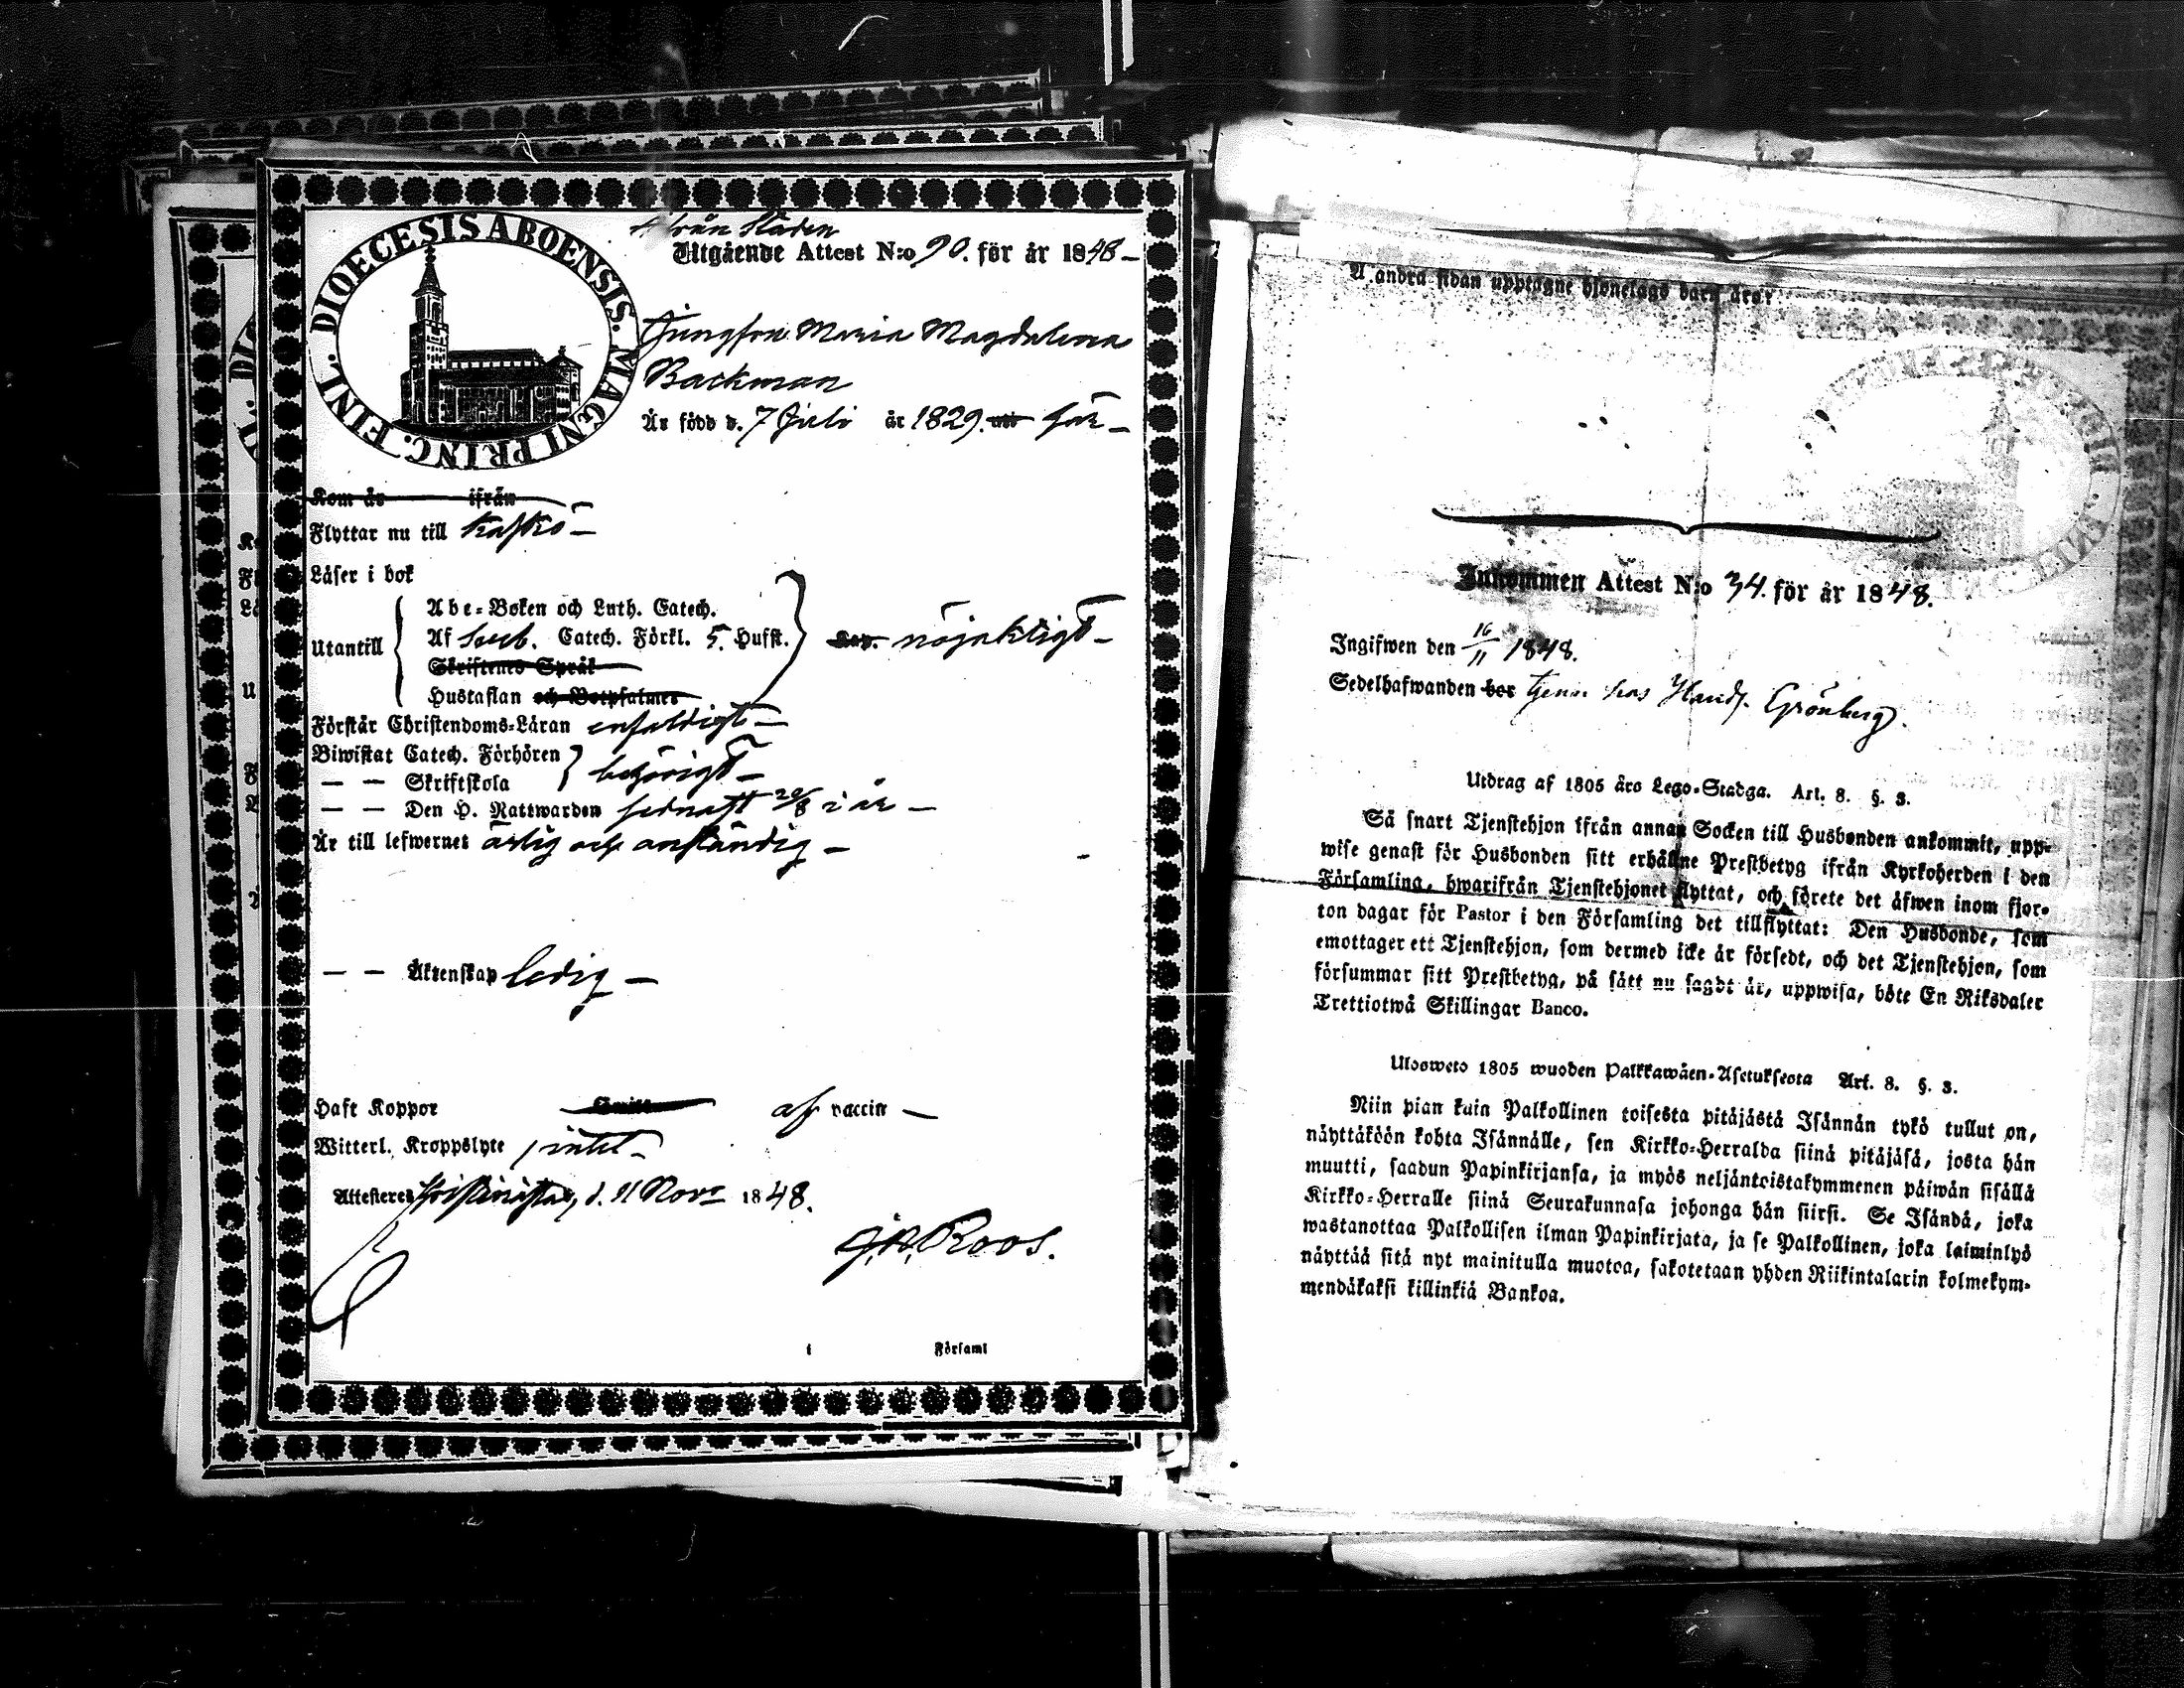 DIOECESIS ABOENSIS. MAGNI PRINC. FINL.
från Staden
Utgående Attest N:o 90. för år 1848 –
Jungfru Maria Magdalena
Backman
Är född d. 7 Juli år 1829. uti här –
Kom år ifrån
Flyttar nu till Kaskö –
Läser i bok
Utantill
Abc-Boken och Luth. Catech.
Af Sveb. Catech. Förkl. 5. Hufst.
Skriftenes Språk
Hustaflan och Botpsalmer
nöjaktigt –
Förstår Christendoms-Läran enfaldigt –
Biwistat Catech. Förhören
— — Skriftskola
behörigt –
— — Den H. Nattwarden sednast 20/8 i år –
Är till lefwernet ärlig och anständig –
— — Äktenskap ledig –
Haft Koppor af vaccin –
Witterl. Kroppslyte intet –
Attesteres Christinestad, d. 11 Novr 1848.
Roos.
i Församl
A andra sidan upptagne hjonelags barn äro:
Inkommen Attest N:o 34. för år 1848.
Ingifwen den 16/11 1848.
Sedelhafwanden bor tjenar hos Handl. Grönberg.
Utdrag af 1805 års Lego-Stadga. Art. 8. §. 3.
Så snart Tjenstehjon ifrån annan Socken till Husbonden ankommit, upp-
wise genast för Husbonden sitt erhållne Prestbetyg ifrån Kyrkoherden i den
Församling, hwarifrån Tjenstehjonet flyttat, och förete det äfwen inom fjor-
ton dagar för Pastor i den Församling det tillflyttat: Den Husbonde, som
emottager ett Tjenstehjon, som dermed icke är försedt, och det Tjenstehjon, som
försummar sitt Prestbetyg, på sätt nu sagdt är, uppwisa, böte En Riksdaler
Trettiotwå Skillingar Banco.
Ulosweto 1805 wuoden Palkkawäen-Asetuksesta Art. 8. §. 3.
Niin pian kuin Palkollinen toisesta pitäjästä Isännän tykö tullut on,
näyttäköön kohta Isännälle, sen Kirkko-Herralda siinä pitäjäsä, josta hän
muutti, saadun Papinkirjansa, ja myös neljäntoistakymmenen päiwän sisällä
Kirkko-Herralle siinä Seurakunnasa johonga hän siirsi. Se Isändä, joka
wastanottaa Palkollisen ilman Papinkirjata, ja se Palkollinen, joka laiminlyö
näyttää sitä nyt mainitulla muotoa, sakotetaan yhden Riikintalarin kolmekym-
mendäkaksi killinkiä Bankoa.